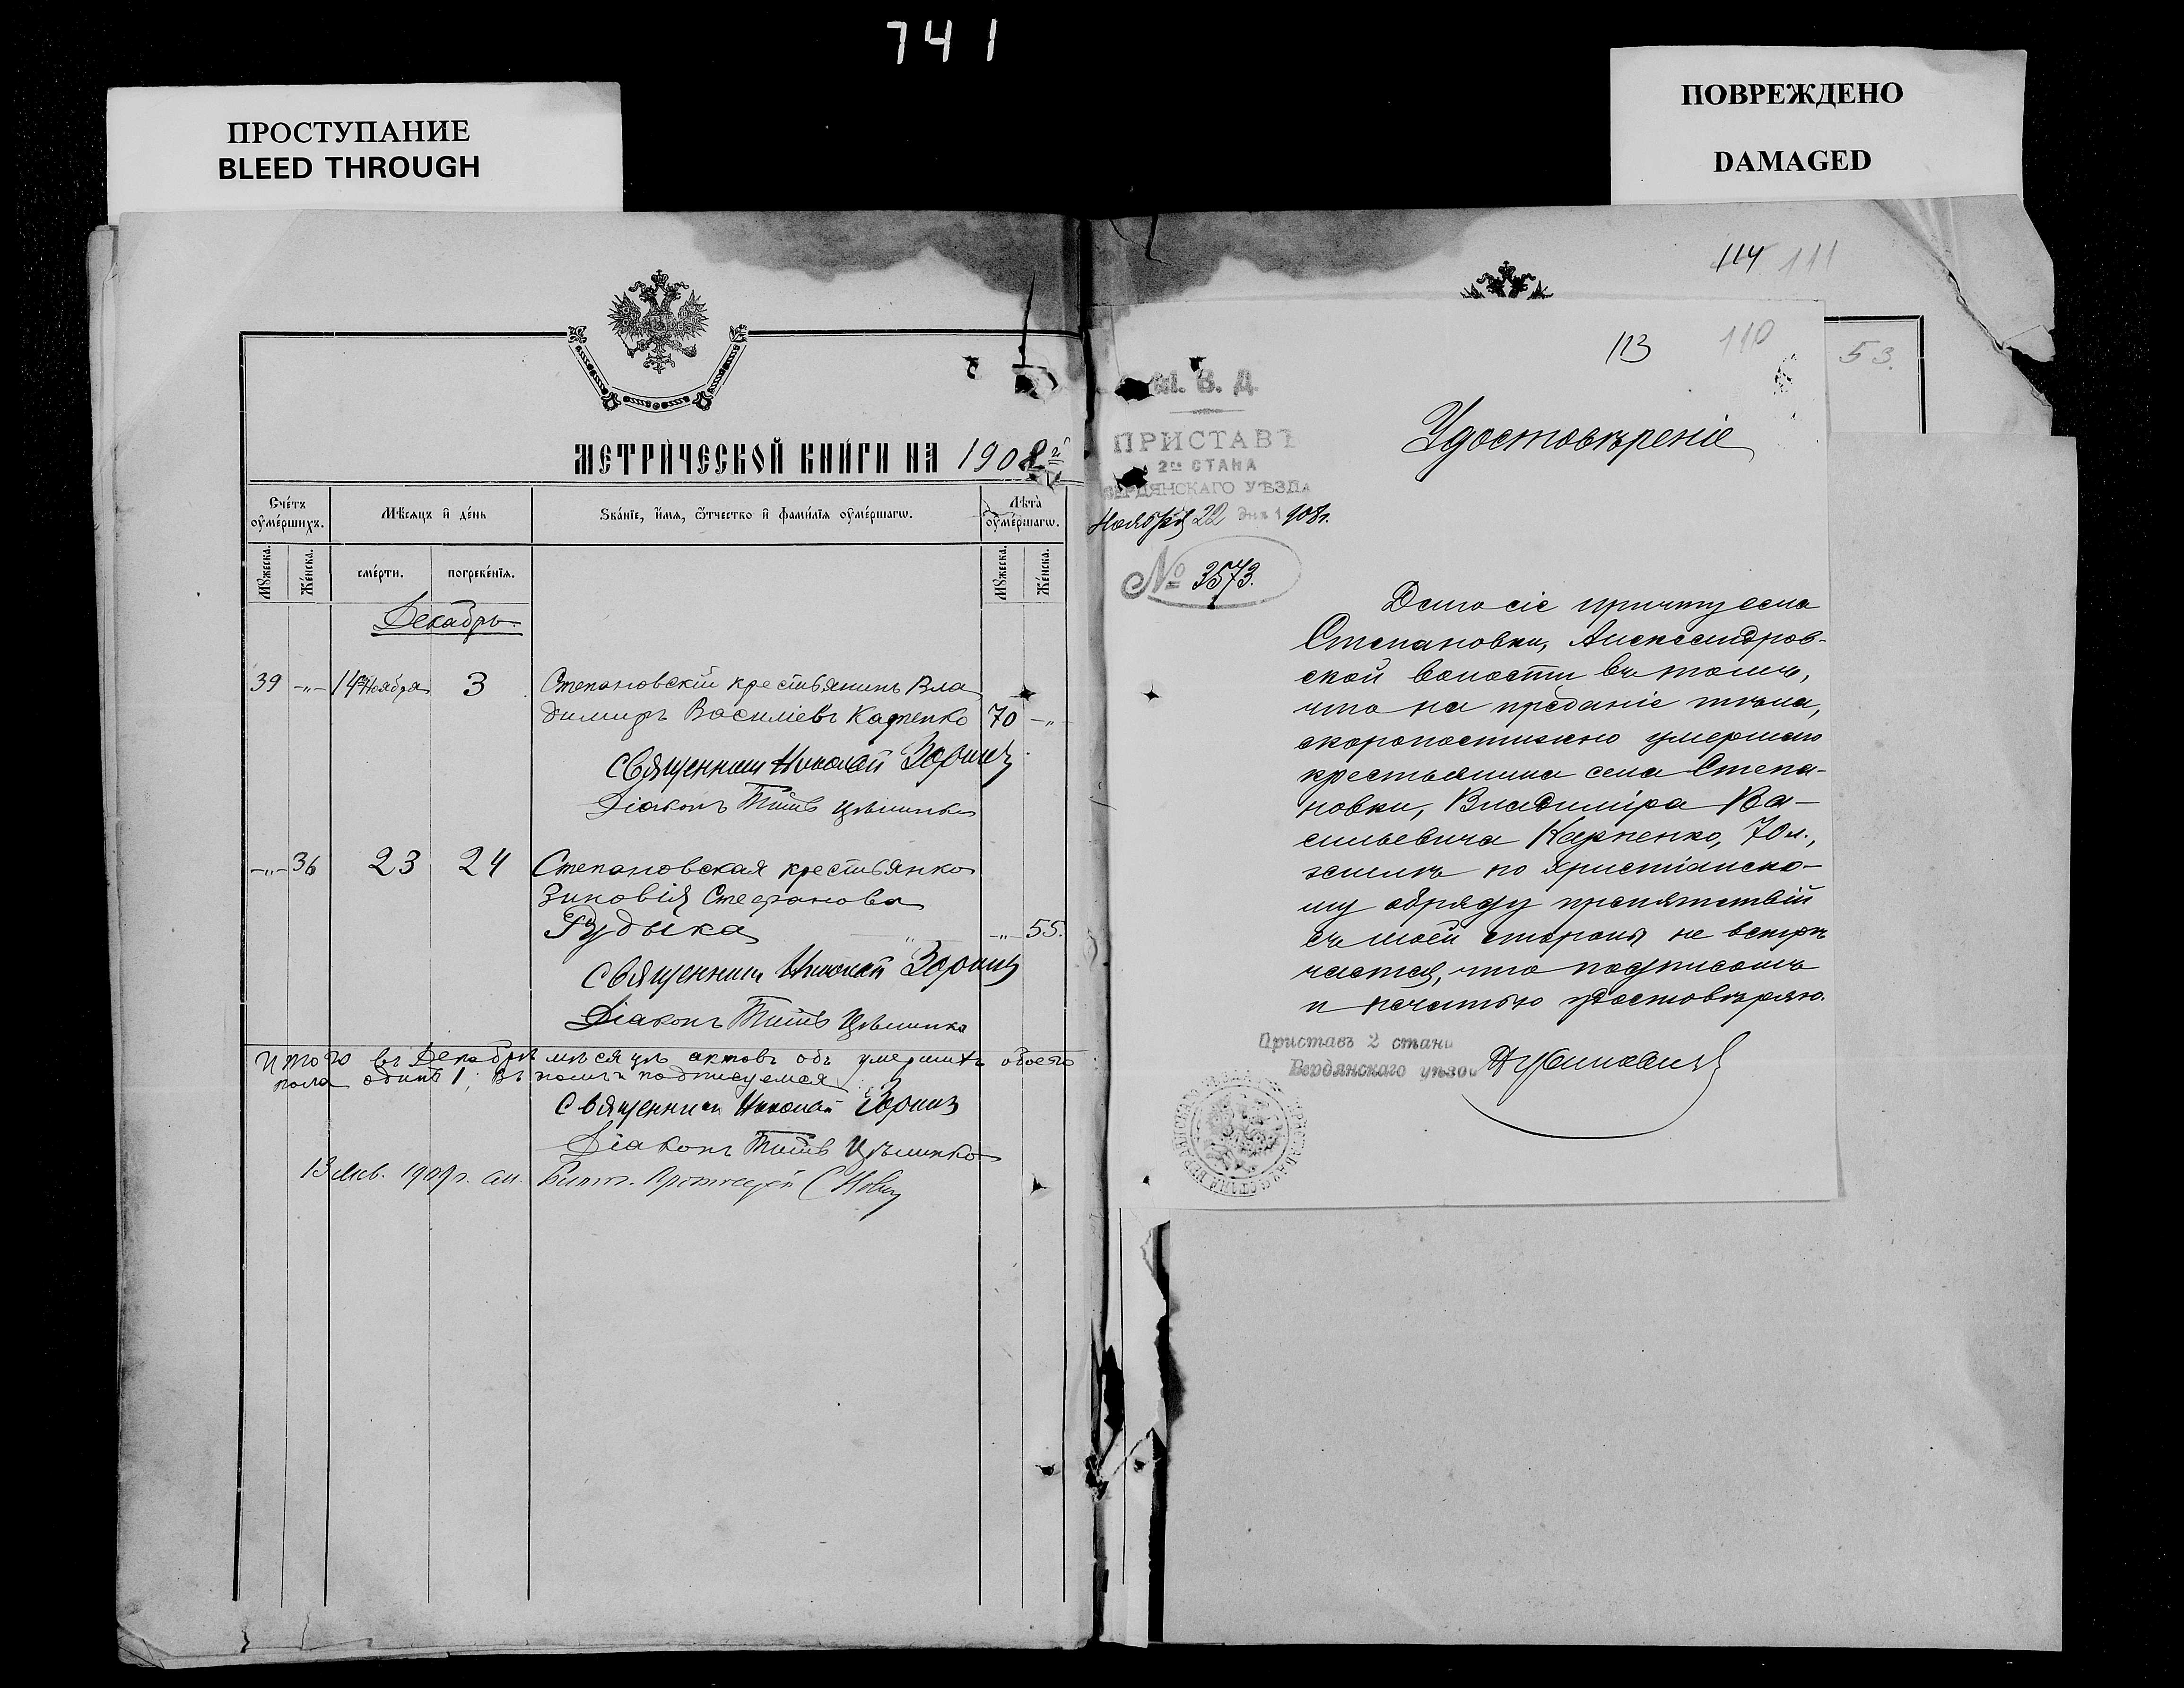 741
ПРОСТУПАНИЕ
BLEED THROUGH
ПОВРЕЖДЕНО
DAMAGED
МЕТРИЧЕСКОЙ КНИГИ НА 1908 г.
Счетъ оумершихъ.
Мѣсяцъ и день
Званіе, имя, отчество и фамилія оумершагω.
Лѣта оумершагω.
Мужеска.
Женска.
смерти.
погребенія.
Мужеска.
Женска.
Декабрь
39 -„- 14 Ноября 3 Степановскій крестьянинъ Вла
димиръ Василіевъ Карпенко 70 -„-
Священникъ Николай Зоринъ
Діаконъ Титъ
-„- 36 23 24 Степановская крестьянка
Зиновія Стефанова
Рудыка -„- 55.
Священникъ Николай Зоринъ
Діаконъ Титъ
Итого въ Декабрѣ мѣсяцѣ актовъ объ умершихъ обоего
пола одинъ 1; въ томъ подписуемся
Священникъ Николай Зоринъ
Діаконъ Титъ
13 1909 г.
114 111
53.
113 110
М. В. Д.
ПРИСТАВЪ
2го СТАНА
БЕРДЯНСКАГО УѢЗДА
Ноября 22 дня 1908 г.
№ 3573.
Удостовѣреніе
Дано сіе причту села
Степановки, Александров-
ской волости въ томъ,
что на преданіе тѣла,
скоропостижно умершаго
крестьянина села Степа-
новки, Владиміра Ва-
сильевича Карпенко, 70 л.,
землѣ по христіанско-
му обряду препятствій
съ моей стороны не встрѣ
чается, что подписомъ
и печатью удостовѣряю.
Приставъ 2 стана
Бердянскаго уѣзда